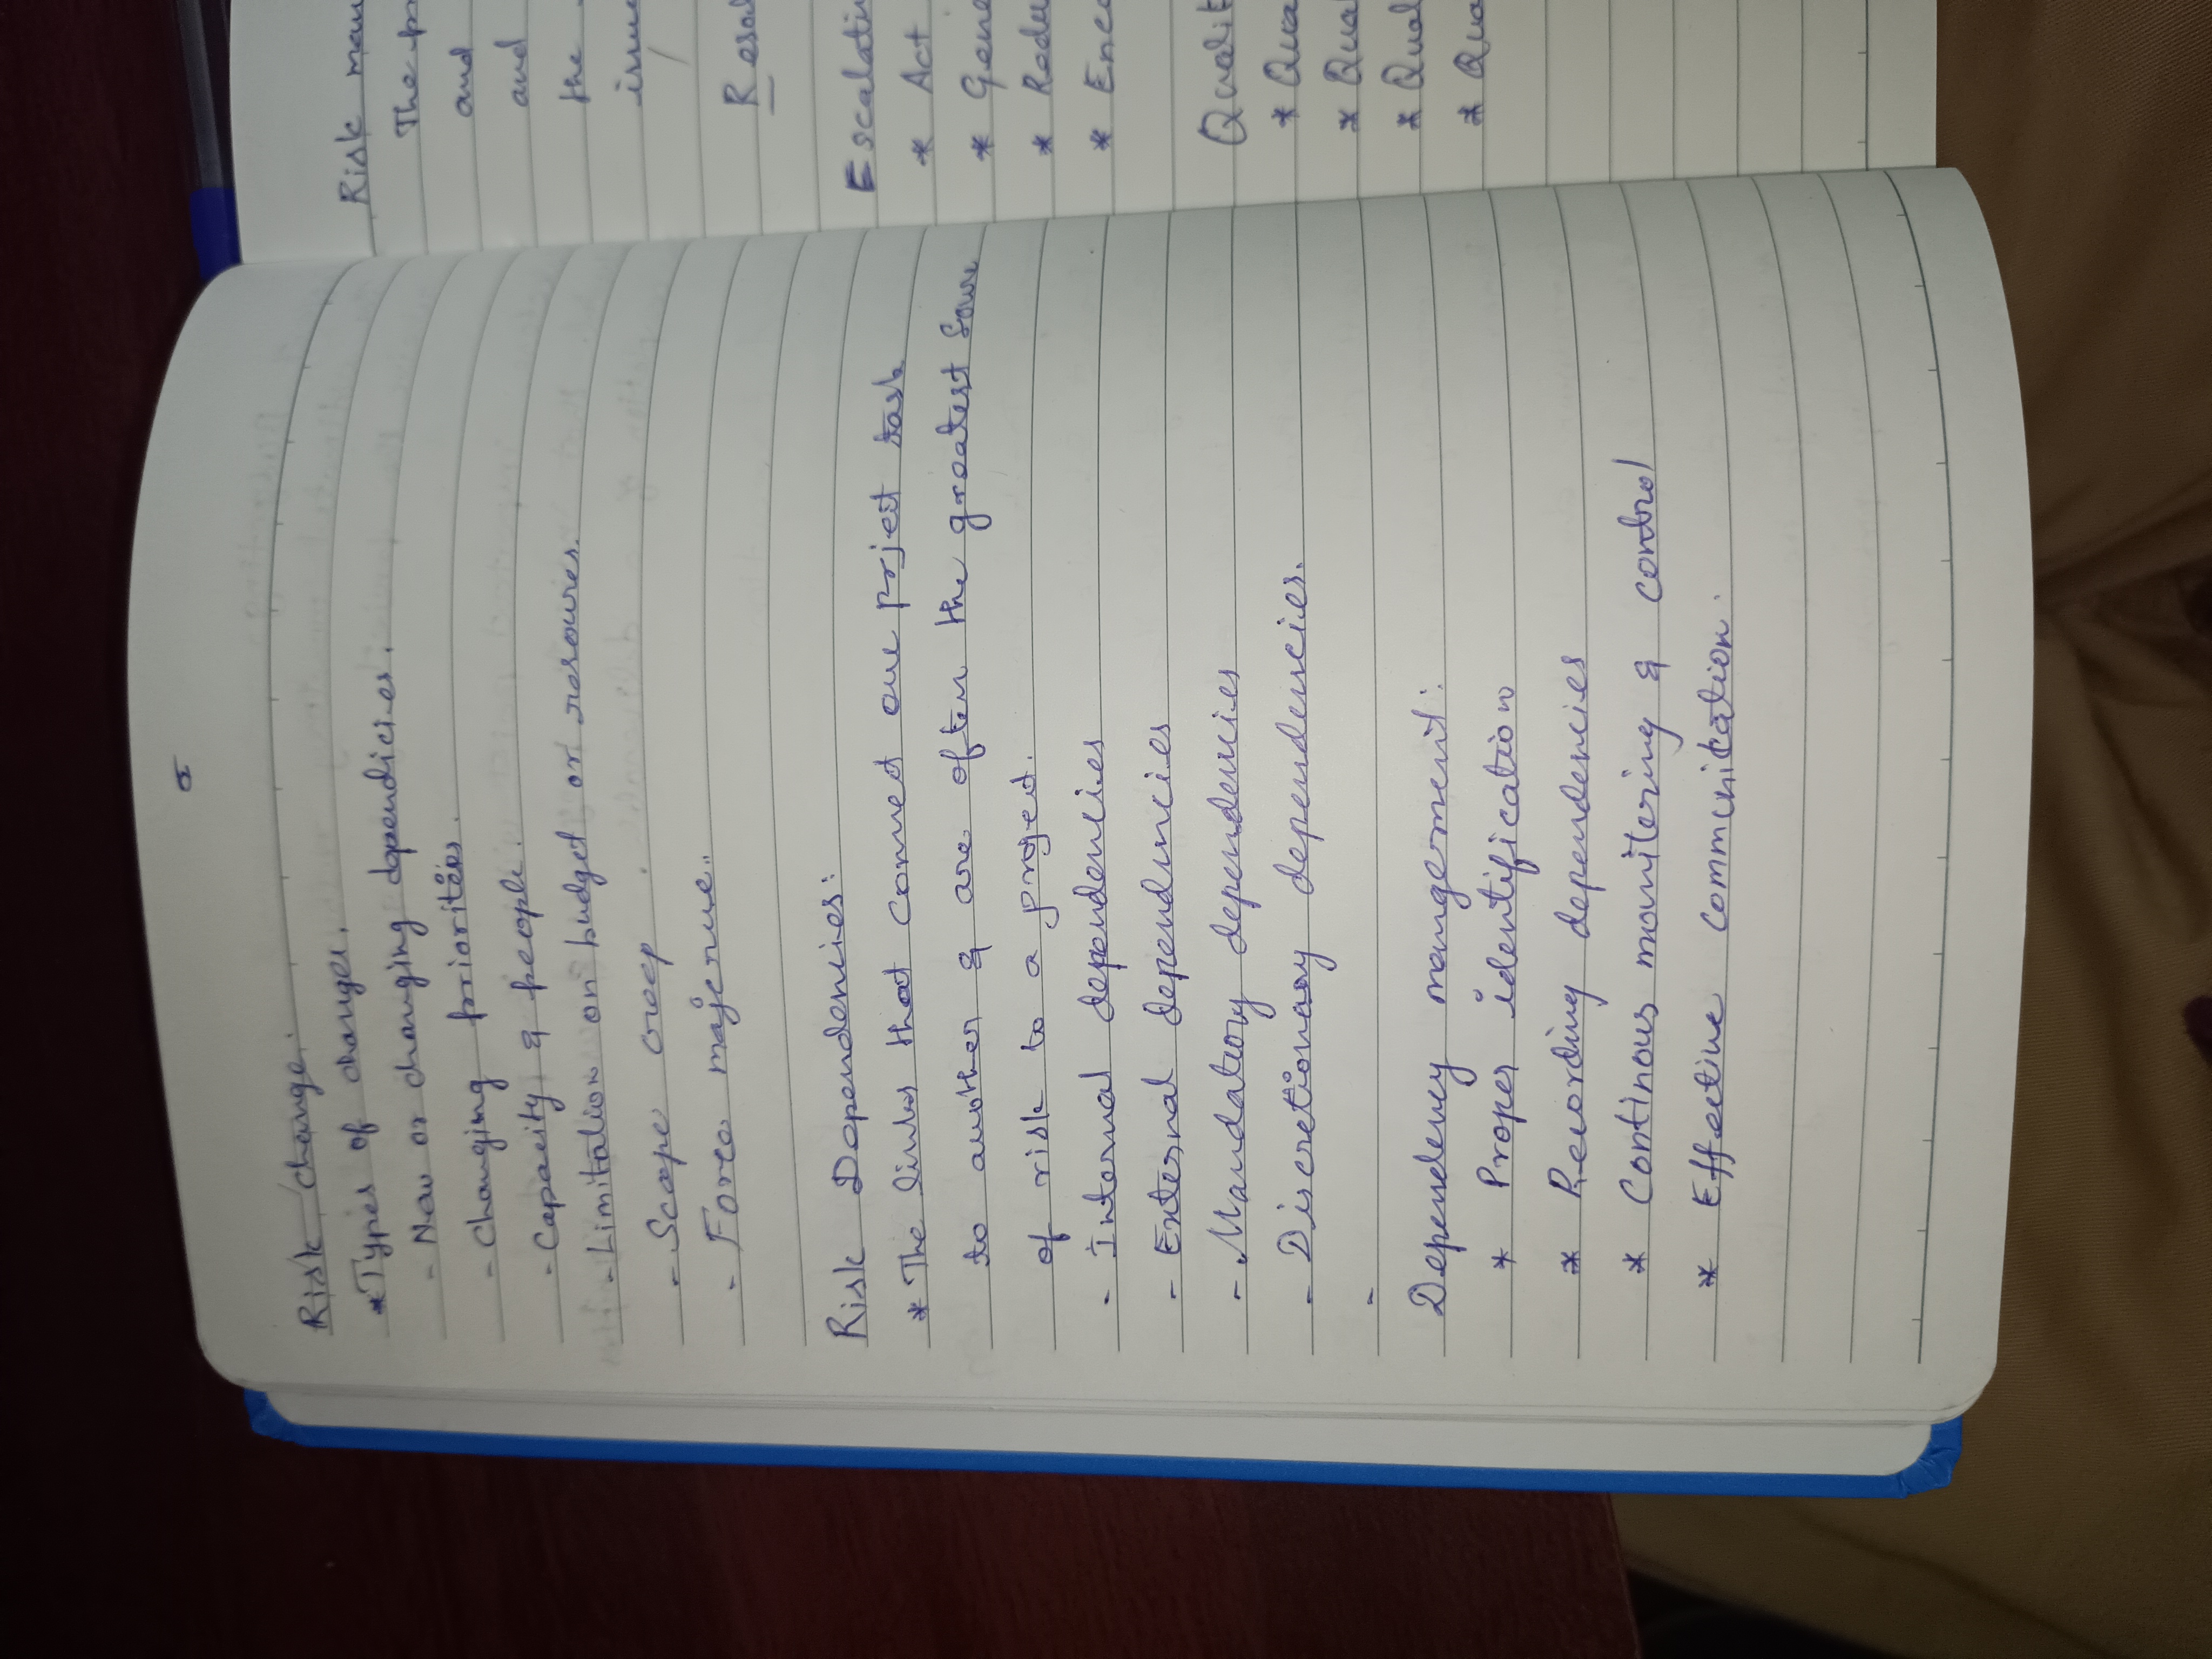 Risk change.
*Types of changes.
- New or changing dependicies.
- Changing priorities.
- Capacity & people.
- Limitation on budget or resources.
- Scope creep.
- Force majerue..
Risk Dependencies:
* The links that connect one prject task
to another & are often the greatest
of risk to a project.
- Internal dependencies
- External dependencies
- Mandatory dependencies
- Discretionary dependencies.
-
Dependency mangement:
* Proper identification
* Recording dependencies
* Continous monitering & control
* Effective communication.
Risk man
The pr
and
and
the
issu
Resol
Escalati
* Act
* Gene
* Redu
* Enco
Qualit
* Qua
* Qua
* Qual
* Qua